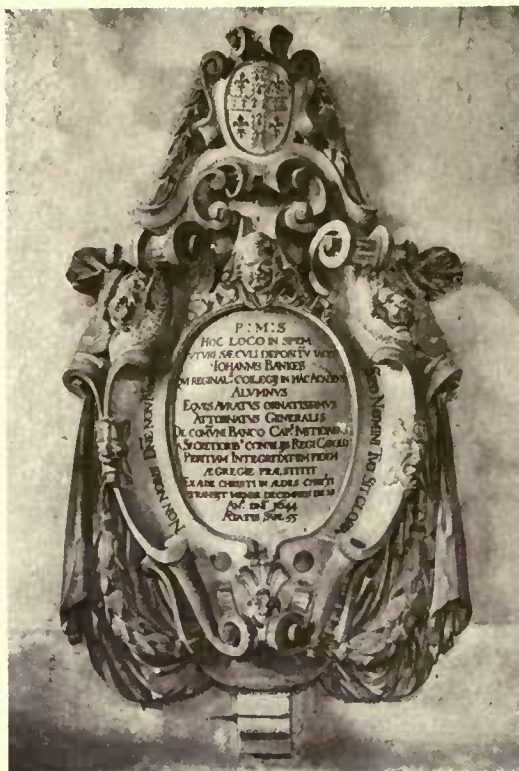 P : M : S
HOC LOCO IN SPEM
FVTVRI SÆCVLI DEPOSITV̄ IACET
IOHANNES BANKES
QVI REGINAL' COLLEGIJ IN HAC ACADEMIA
ALVMNVS
EQVES AVRATVS ORNATISSIMVS
ATTORNATVS GENERALIS
DE COMVNI BANCO CAP' IVSTICIARIVS
A SECRETIORIB' CONSILIJS REGI CAROLO
PERITIAM INTEGRITATEM FIDEM
ÆGREGIE PRÆSTITIT
EX ÆDE CHRISTI IN ÆDES CHRISTI
TRANSIJT MENSE DECEMBRIS DIE
AN̄. DN̄I 1644
ÆTATIS SVÆ 55
NON NOBIS DNE NON NOBIS
SED NOMINI TVO SIT GLORIA